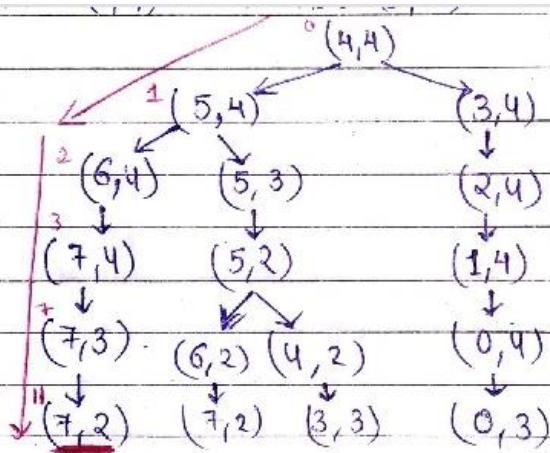 0 (4,4)
1 (5,4) (3,4)
2 (6,4) (5,3) (2,4)
3 (7,4) (5,2) (1,4)
7 (7,3) (6,2) (4,2) (0,4)
11 (7,2) (7,2) (3,3) (0,3)